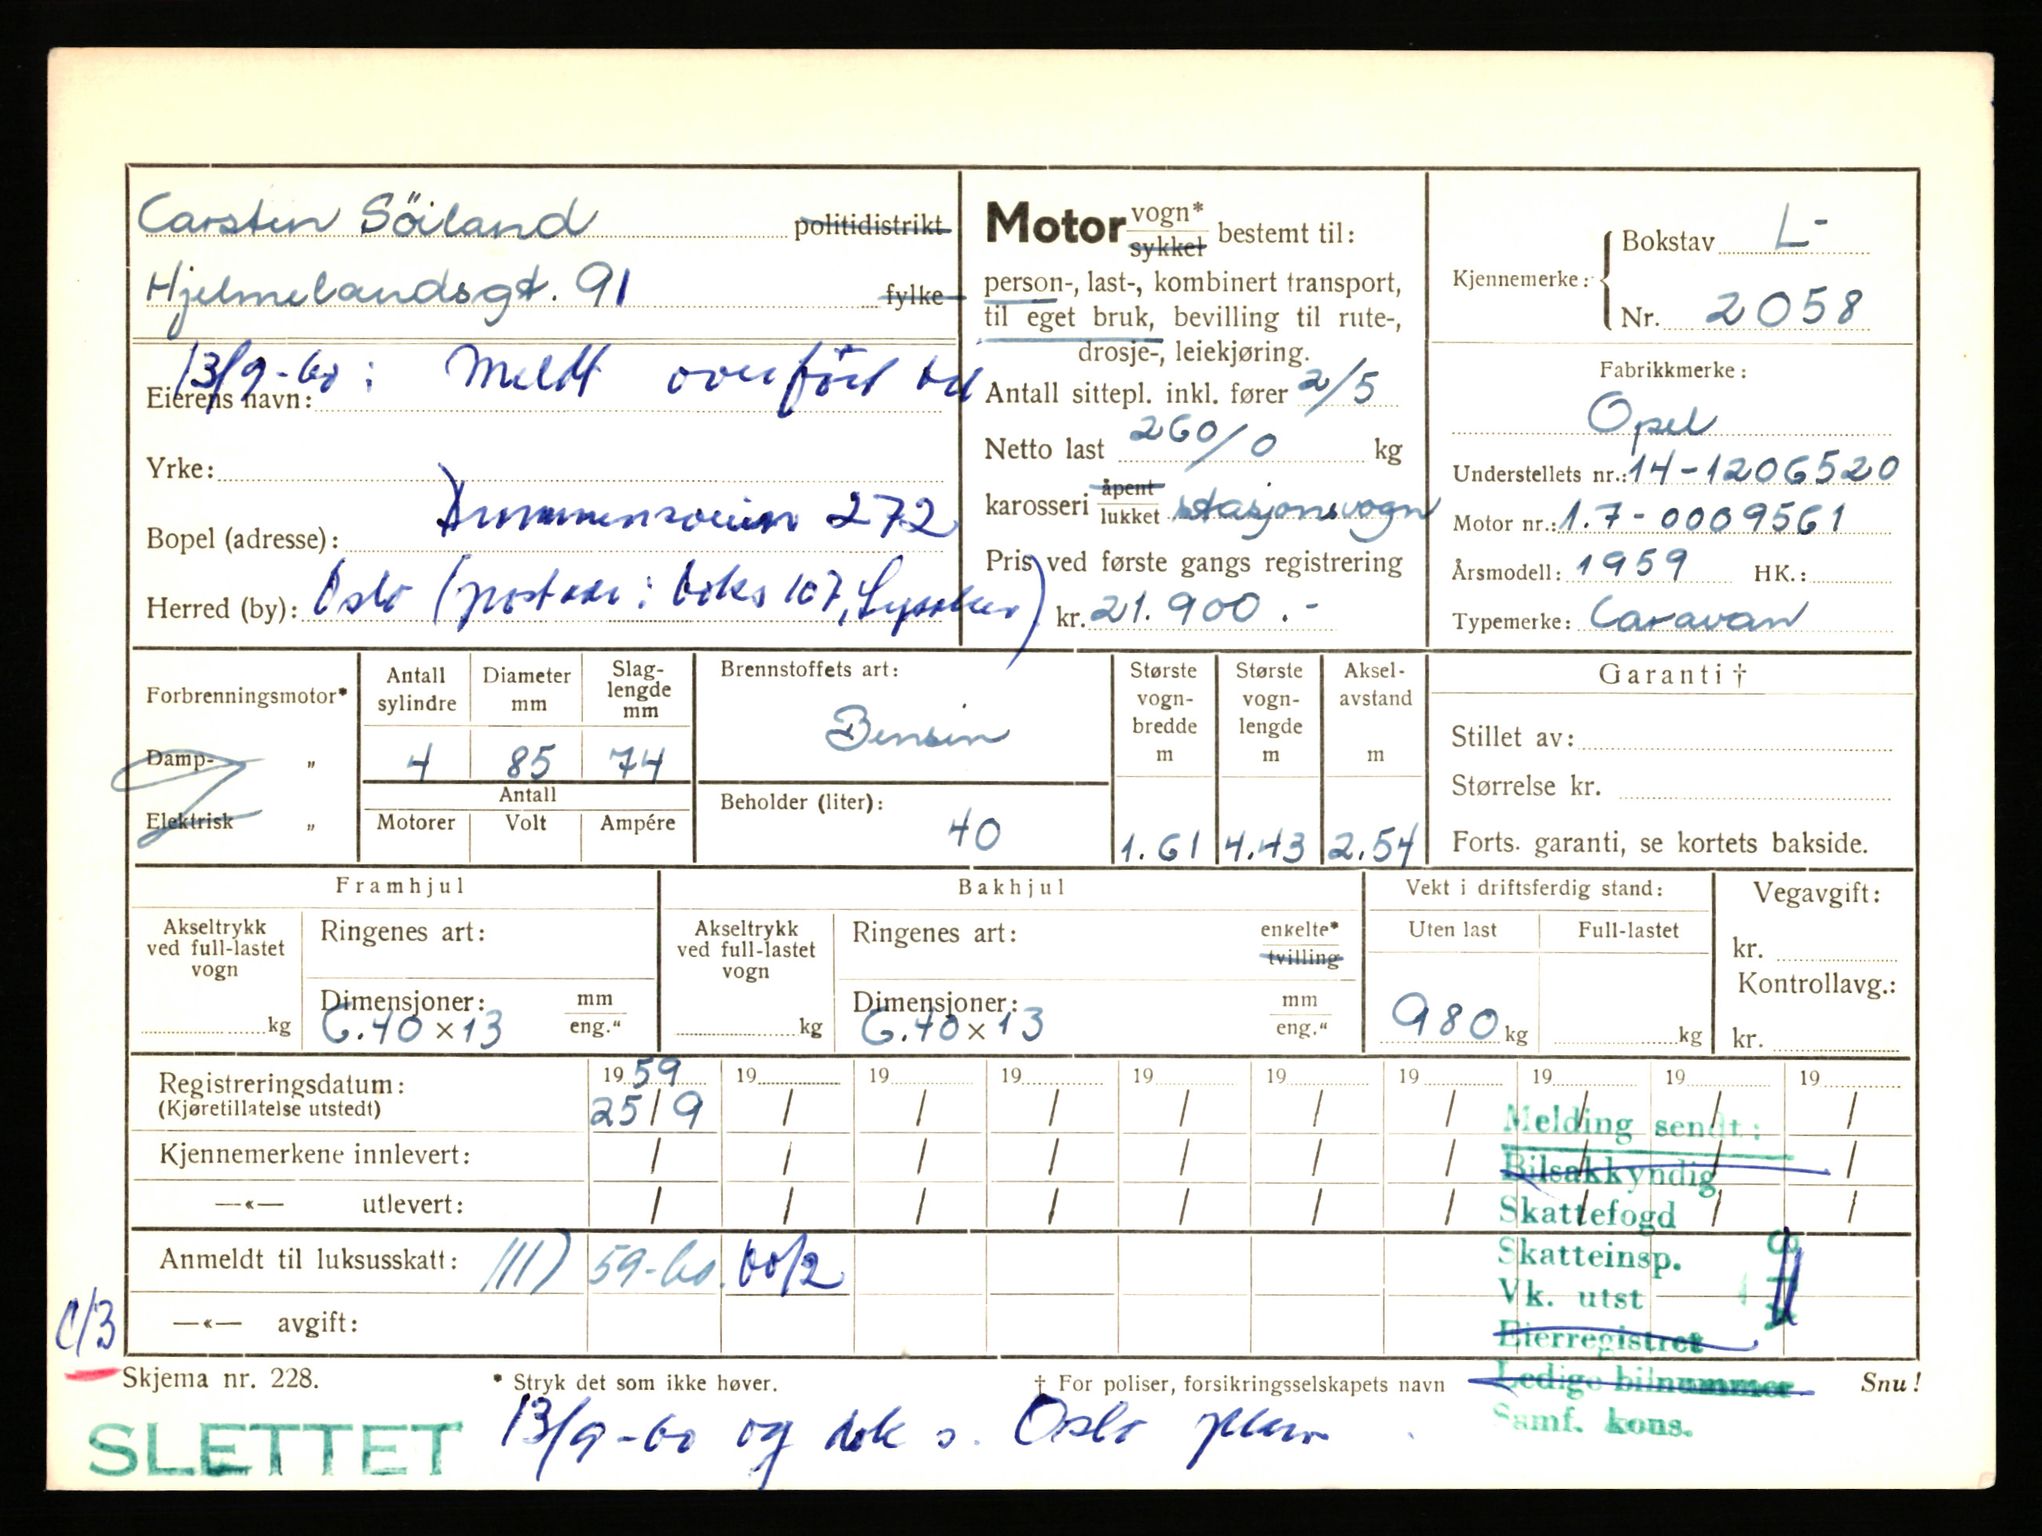 Carsten Söiland politidistrikt
Hjelmelandsgt. 91 fylke
13/9-60: Meldt overfört til
Eierens navn:
Yrke:
Drammensveien 272
Bopel (adresse):
Herred (by): Oslo (postadr: boks 107, Lysaker)
Motor vogn* sykkel bestemt til:
person-, last-, kombinert transport,
til eget bruk, bevilling til rute-,
drosje-, leiekjøring.
Antall sittepl. inkl. fører 2/5
Netto last 260/0 kg
karosseri åpent lukket stasjonsvogn
Pris ved første gangs registrering
kr. 21.900.-
Kjennemerke: Bokstav L-
Nr. 2058
Fabrikkmerke:
Opel
Understellets nr.: 14-1206520
Motor nr.: 1.7-0009561
Årsmodell: 1959 HK.:
Typemerke: Caravan
Forbrenningsmotor*
Damp- „
Elektrisk „
Antall sylindre Diameter mm Slaglengde mm
4 85 74
Antall
Motorer Volt Ampére
Brennstoffets art:
Bensin
Beholder (liter):
40
Største vognbredde m Største vognlengde m Akselavstand m
1.61 4.43 2.54
Garanti †
Stillet av:
Størrelse kr.
Forts. garanti, se kortets bakside.
Framhjul
Akseltrykk ved full-lastet vogn
kg
Ringenes art:
Dimensjoner: mm eng."
6.40 x 13
Bakhjul
Akseltrykk ved full-lastet vogn
kg
Ringenes art: enkelte* tvilling
Dimensjoner: mm eng."
6.40 x 13
Vekt i driftsferdig stand:
Uten last Full-lastet
980 kg kg
Vegavgift:
kr.
Kontrollavg.:
kr.
Registreringsdatum: 1959 19 19 19 19 19 19 19 19 19
(Kjøretillatelse utstedt) 25/9 / / / / / / / / /
Kjennemerkene innlevert: / / / / / / / / / /
—«— utlevert: / / / / / / / / / /
Anmeldt til luksusskatt: III) 59-60. 60/2
—«— avgift:
Melding sendt:
Bilsakkyndig
Skattefogd
Skatteinsp.
Vk. utst
Eierregistret
Ledige bilnummer
Samf. kons.
C/3
Skjema nr. 228. * Stryk det som ikke høver. † For poliser, forsikringsselskapets navn Snu!
SLETTET 13/9-60 og dok s. Oslo